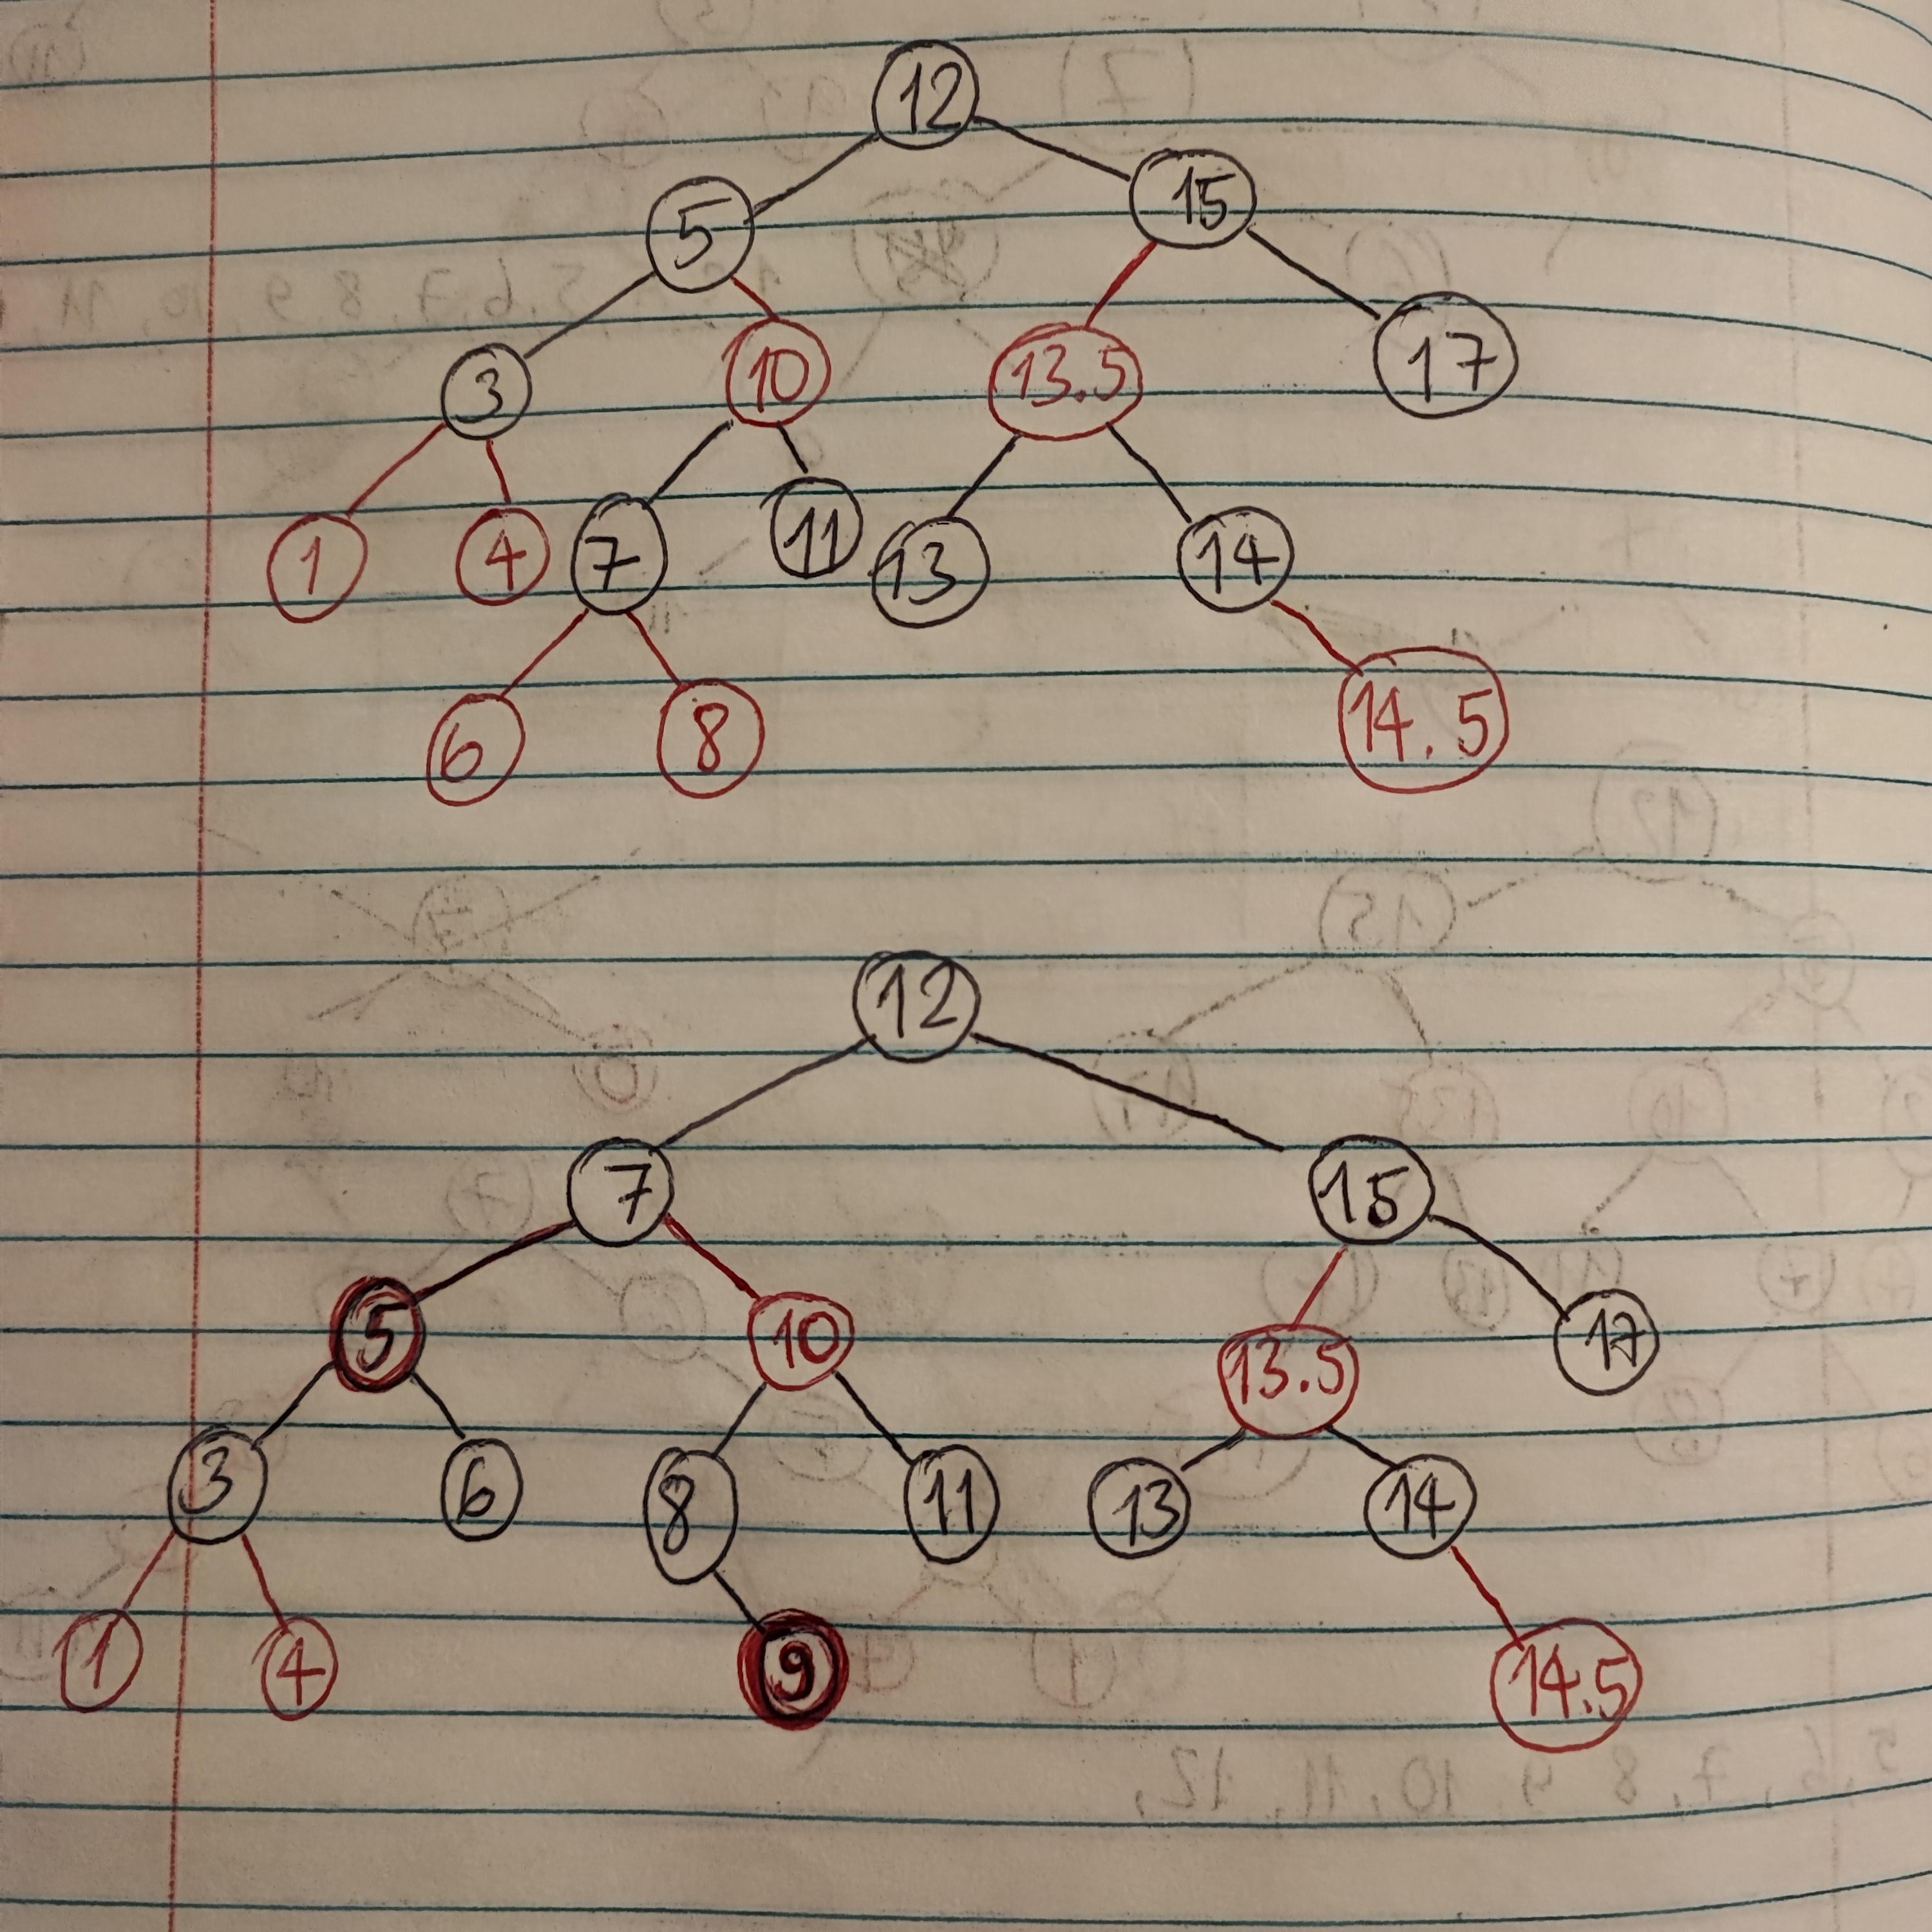 12
5 15
3 10 13.5 17
1 4 7 11 13 14
6 8 14.5
12
7 15
5 10 13.5 17
3 6 8 11 13 14
1 4 9 14.5